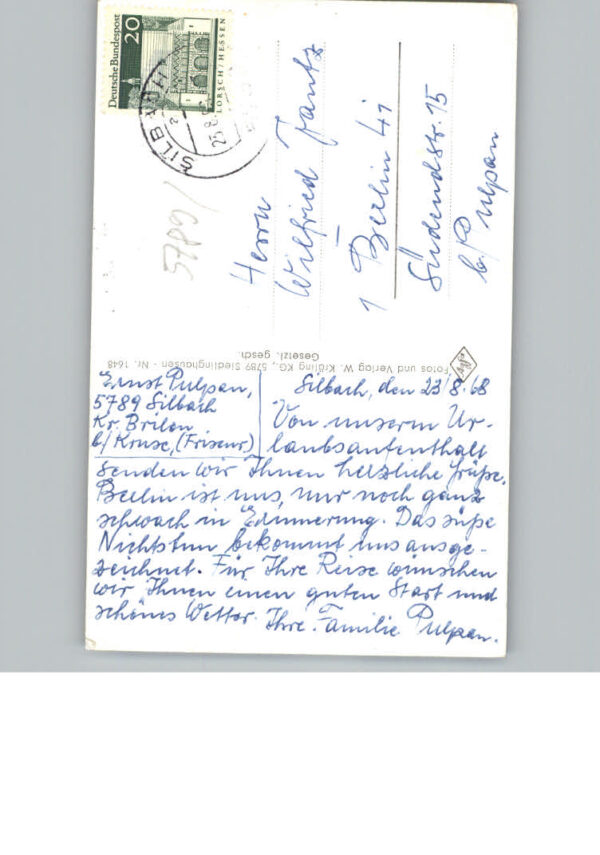 Deutsche Bundespost
20
LORSCH/HESSEN
SILBACH
5789/
Herrn
Wilfried
1 Berlin 41
Südendstr. 15
b/Pulpan
Fotos und Verlag W. Kräling KG., 5789 Siedlinghausen - Nr. 1648
Gesetzl. gesch.
Ernst Pulpan,
5789 Silbach
Kr. Brilon
b/Kruse, (Friseur)
Silbach, den 23/8.68
Von unserm Ur-
laubsaufenthalt
senden wir Ihnen herzliche Grüße.
Berlin ist uns, nur noch ganz
schwach in Erinnerung. Das süße
Nichtstun bekommt uns ausge-
zeichnet. Für Ihre Reise wünschen
wir Ihnen einen guten Start und
schönes Wetter. Ihre. Familie Pulpan.